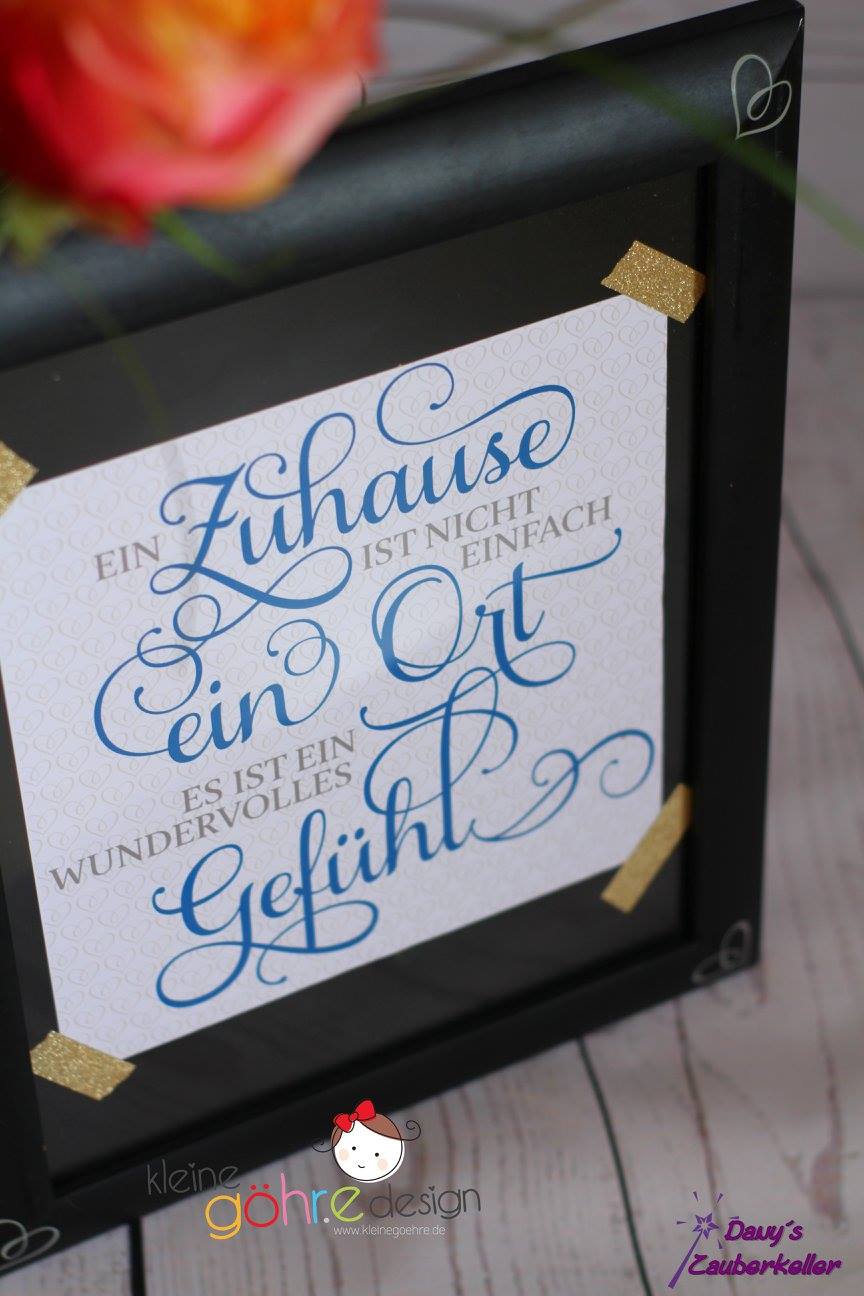 EIN Zuhause
IST NICHT
EINFACH
ein Ort
ES IST EIN
WUNDERVOLLES
Gefühl
kleine
göhr.e design
www.kleinegoehre.de
Davy´s
Zauberkeller